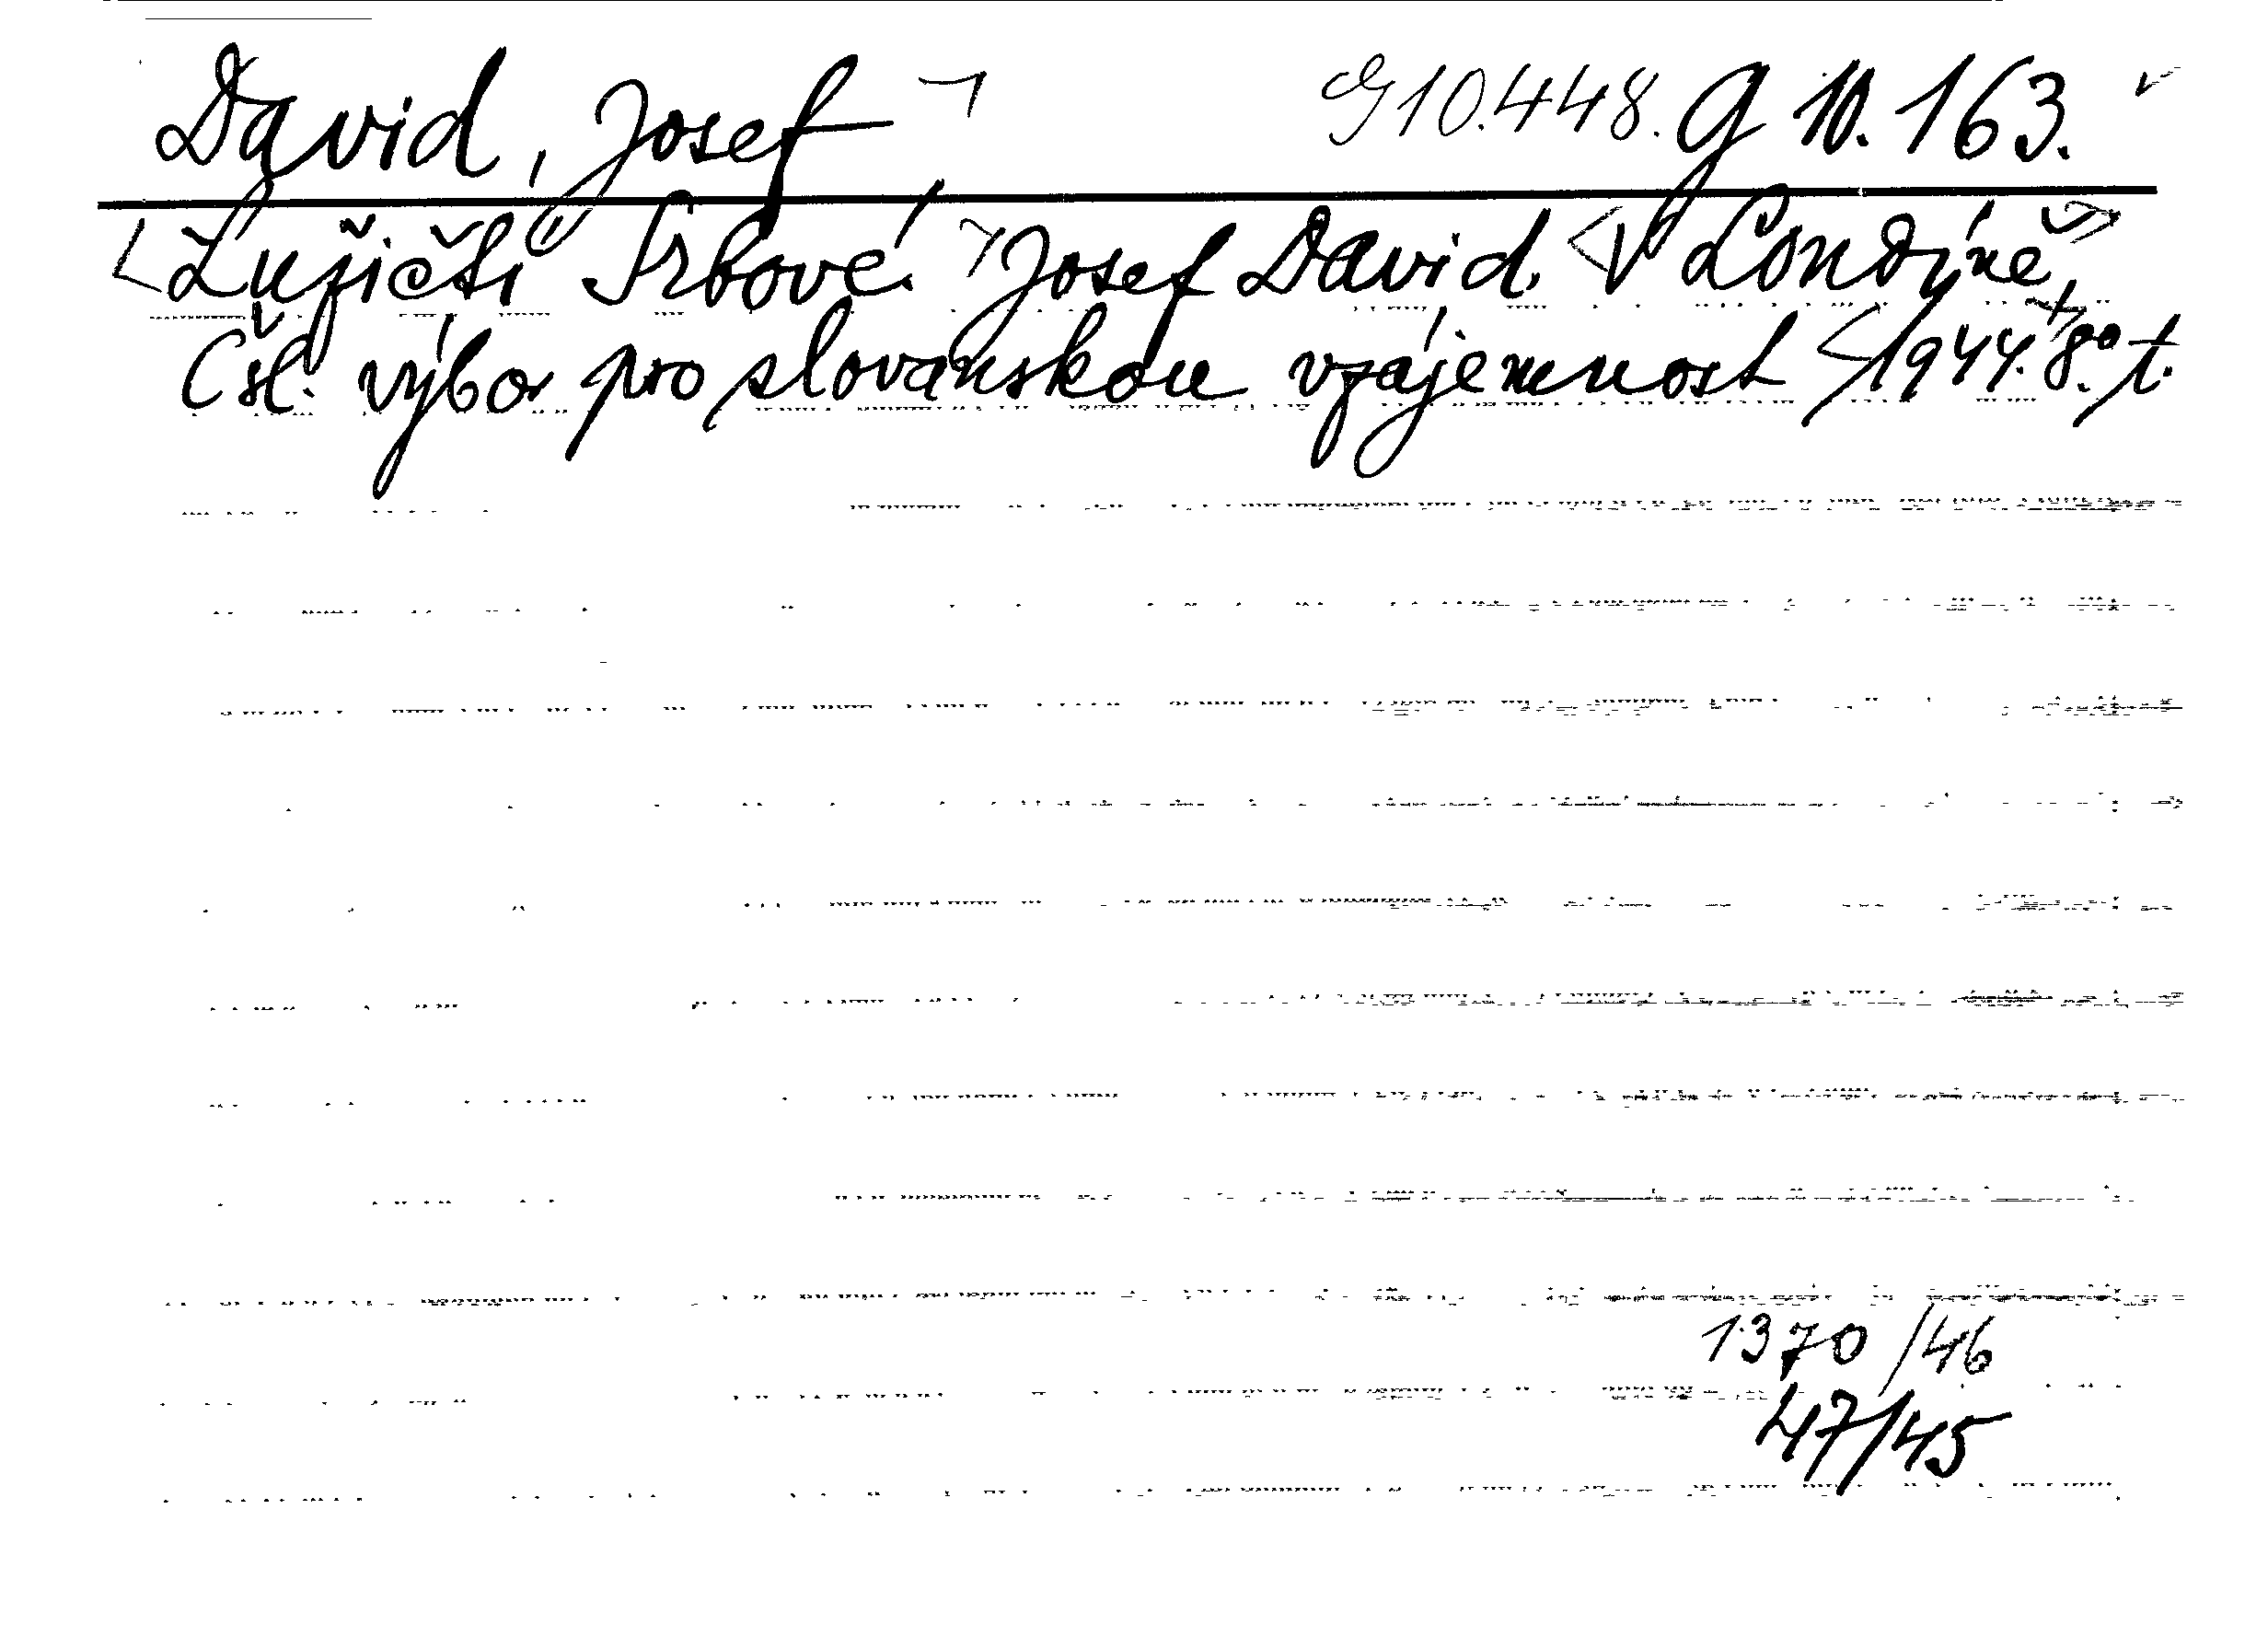 David, Josef G 10.448. G 10.163.
Lužičtí Srbové. Josef David. V Londýně,
Čsl. výbor pro slovanskou vzájemnost 1944. 8° t.
1370/46
47/45